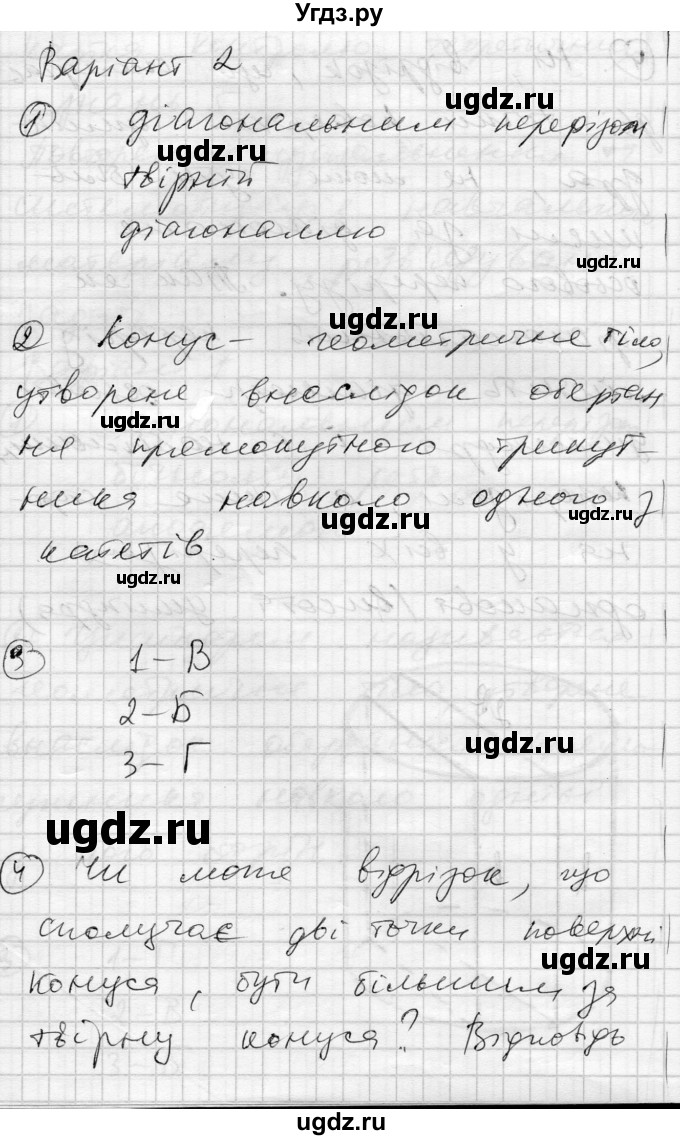 Угдз.ру
Варіант 2
ugdz.ru
① діагональним перерізом
ugdz.ru
твірній
діагоналлю
ugdz.ru
ugdz.ru
② Конус – геометричне тіло,
утворене внаслідок обертан
ugdz.ru
ня прямокутного трикут-
ника навколо одного з
ugdz.ru
ugdz.ru
катетів.
ugdz.ru
③ 1 – В
2 – Б
ugdz.ru
3 – Г
ugdz.ru
④ Чи може відрізок, що
сполучає дві точки поверхні
ugdz.ru
конуса, бути більшим за
ugdz.ru
твірну конуса? Відповідь
ugdz.ru